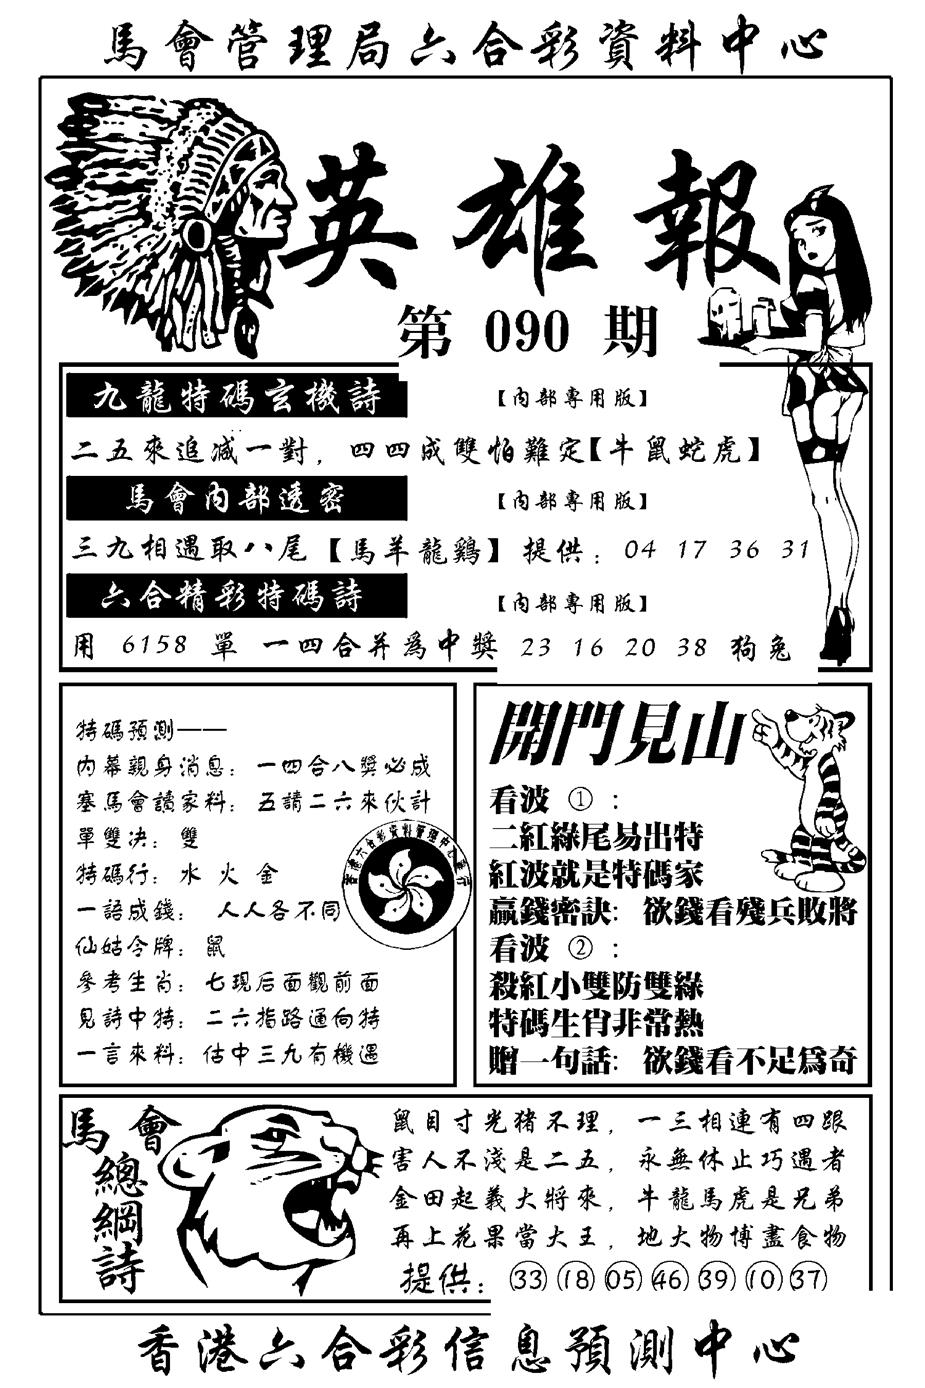 馬會管理局六合彩資料中心
英雄報
第 090 期
九龍特碼玄機詩 【內部專用版】
二五來追减一對，四四成雙怕難定【牛鼠蛇虎】
馬會內部透密 【內部專用版】
三九相遇取八尾【馬羊龍鷄】提供：04 17 36 31
六合精彩特碼詩 【內部專用版】
用 6158 單 一四合并爲中獎 23 16 20 38 狗兔
特碼預測——
內幕親身消息：一四合八獎必成
塞馬會讀家料：五請二六來伙計
單雙决：雙
特碼行：水 火 金
一語成錢： 人人各不同
仙姑令牌：鼠
參考生肖：七現后面觀前面
見詩中特：二六指路通向特
一言來料：估中三九有機遇
香港六合彩資料管理中心發行
開門見山
看波 ①：
二紅綠尾易出特
紅波就是特碼家
贏錢密訣：欲錢看殘兵敗將
看波 ②：
殺紅小雙防雙綠
特碼生肖非常熱
贈一句話：欲錢看不足爲奇
馬會
總綱詩
鼠目寸光猪不理，一三相連有四跟
害人不淺是二五，永無休止巧遇者
金田起義大將來，牛龍馬虎是兄弟
再上花果當大王，地大物博盡食物
提供：㉝ ⑱ 05 ㊻ ㊴ ⑩ ㊲
香港六合彩信息預測中心